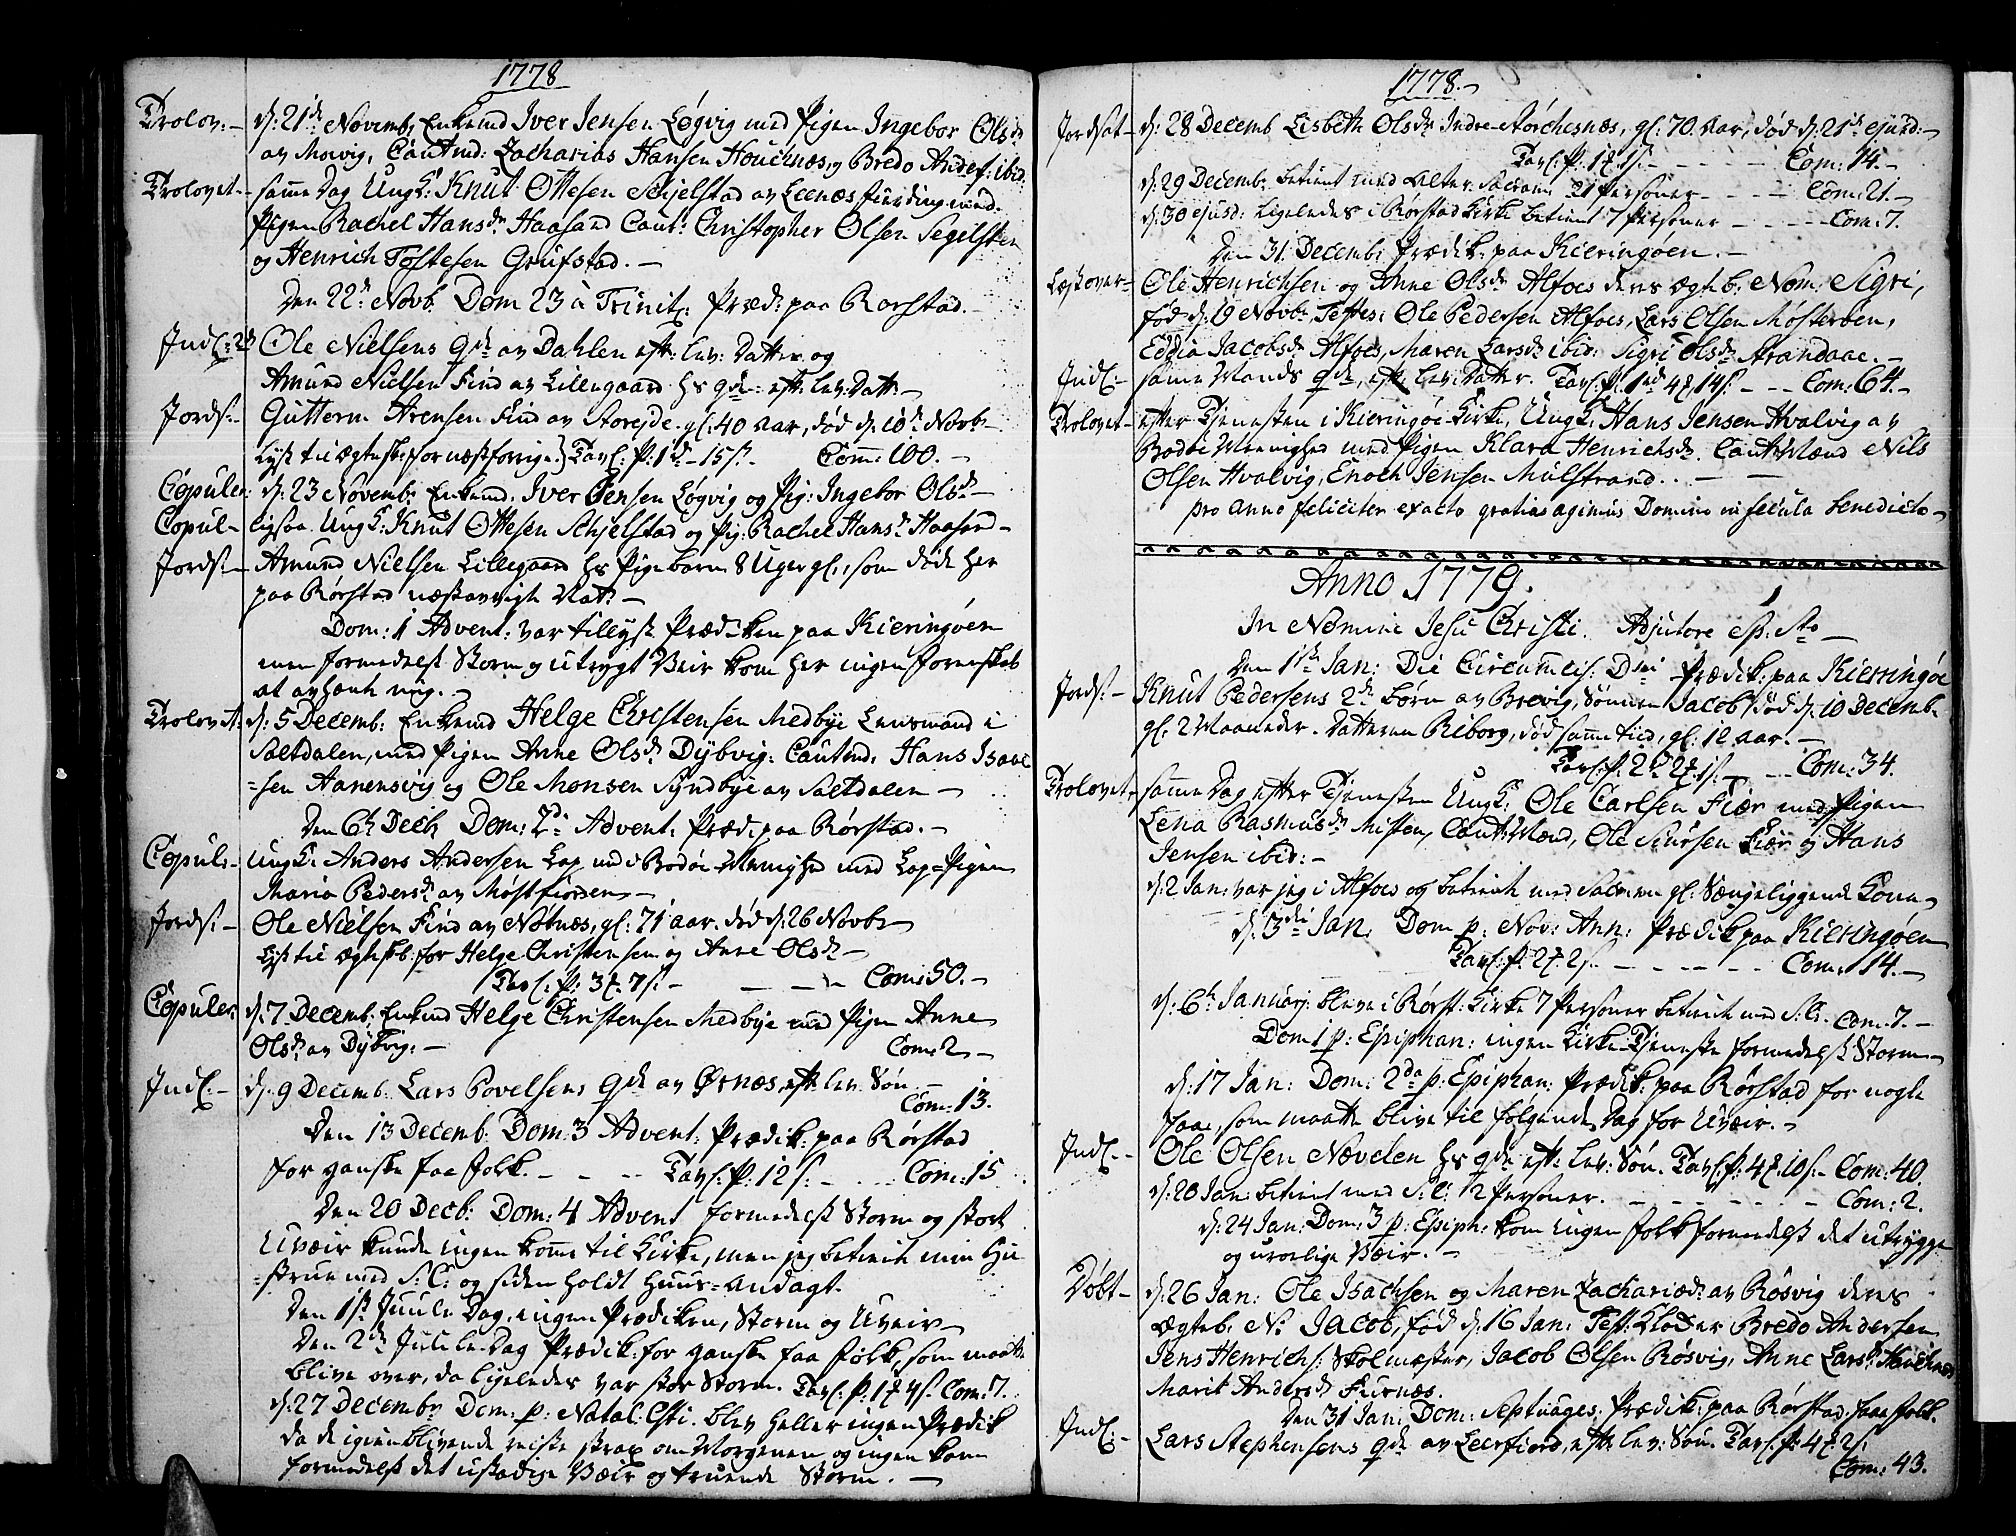 1778
Trolov: d: 21de Novemb: Enkemd Iver Jensen Løgvig med Pigen Ingebor Olsdr
av Movig, Cautmd: Zacharias Hansen Houchnæs, og Bredo Anders: ibid:
Trolovet samme Dag Ungk: Knut Ottesen Schjelstad av Leenæs fierding med
Pigen Rachel Hansdr Haasand Caut: Christopher Olsen Segelsteen
og Henrich Tostesen Grufstad.
Den 22de Novb. Dom 23 à Trinit: Præd: paa Rørstad.
Indl: 2d Ole Nielsens qde av Dahlen eft: lev: Datter og
Amund Nielsen Find av Lillegaard hs qde: eft: lev: Datt:
Jords: Gutterm Arensen Find av Storeide gl: 40 Aar, død d: 10de Novbr
Lyst til Ægtesk: for næstforrige. Tavl: P: 1 - 15 s. Com: 100.
Copuler: d: 23 Novemb: Enkemd: Iver Jensen Løgvig og Pig: Ingebor Olsdr
Copul: ligsaa Ungk: Knut Ottesen Schjelstad og Pig: Rachel Hansdr Haasand
Jords: Amund Nielsen Lillegaard hs Pigebarn 8 Uger gl:, som døde her
paa Rørstad næstavvigte Nat.
Dom: 1 Advent: var tillyst Prædiken paa Kieringøen
men formedelst Storm og utrygt Veir kom her ingen Forenskab
at avhænte mig.
Trolovet: d: 5 Decemb: Enkemd Helge Christensen Medbye Lensmand i
Saltdalen, med Pigen Anne Olsdr Dybvig: Cautmd: Hans Isaac
=sen Hanensvig og Ole Monsen Syndbye av Saltdalen
Den 6te Decb. Dom: 2de Advent: Præd: paa Rørstad.
Copul: Ungk: Anders Andersen Lap ud i Bodøe Menighed med Lap=Pigen
Maria Pedersdr av Møstfiorden
Jords: Ole Nielsen Find av Nøtnæs, gl: 71 aar. død d: 26 Novbr
Lyst til Ægtesk: for Helge Christensen og Anne Olsdr
Tavl: P: 3 7 s. Com: 50.
Copuler: d: 7 Decemb: Enkmd Helge Christensen Medbye med Pigen Anne
Olsdr av Dybvig: Com: 2
Indl: d: 9 Decemb: Lars Povelsens qde av Ørnæs, eft: lev: Søn
Com: 13.
Den 13 Decemb: Dom: 3 Advent: Prædik: paa Rørstad
for ganske faa Folk. Tavl: P: 12 s. Com: 15
Den 20 Decb: Dom: 4 Advent formedelst Storm og stort
Uveir kunde ingen komme til Kirke, men jeg betiente min Hu
=strue med S: C: og siden holdt Huus=Andagt.
Den 1st Juule Dag, ingen Prædiken, Storm og Uveir
Den 2de Juule Dag Prædik: for ganske faa Folk, som maatte
blive over, da ligeledes var stor Storm. Tavl: P: 1 4 s. Com: 7.
d: 27 Decembr Dom: p: Natal: Chsti. blev heller ingen Prædik
da de igienblivende reiste strax om Morgenen og ingen kom
formedelst det ustadige Veir og truende Storm.
1778.
Jordsat d: 28 Decemb Lisbeth Olsdr Indre-Størchesnæs, gl: 70 Aar, død d: 21de ejusd:
Tavl: P: 1 1 s. Com: 14.
d: 29 Decemb: betient med Alter Sacram: 21 Personer Com: 21.
d: 30 ejusd: ligeledes i Rørstad Kirke betient 7 Personer Com: 7.
Den 31 Decemb: Prædik: paa Kieringøen.
Læst over Ole Henrichsen og Anne Olsdr Alfoes deres Ægteb: Nom: Sigri,
Fød d: 19 Novbr, Testes: Ole Pedersen Alfoes, Lars Olsen Mosterøen,
Eddia Jacobsdr Alfoes, Maren Larsdr ibid: Sigri Olsdr Strandaae.
Indl: samme Mands qde, eft: lev: Datter. Tavl: P: 1 4 14 s. Com: 64.
Trolovet efter Tjenesten i Kieringøe Kirke, Ungk: Hans Jensen Hvalvig av
Bodøe Menighed med Pigen Klara Henrichsdr. Caut: Mænd Nils
Olsen Hvalvig, Enoch Jensen Mulstrand.
pro anno feliciter exacto gratias agimus Domino in secula benedicto
Anno 1779.
In Nomine Jesu Christi. Adjutore Sp: Sto
Den 1ste Jan: Die Circumcis: Dni Prædik: paa Kierringøe
Jords: Knut Pedersens 2de Børn av Brevig, Sønnen Jacob død d: 10 Decemb:
gl: 2 Maaneder. Datteren Riborg, død samme tid, gl: 12 Aar.
Tavl: P: 2 2 1 s. Com: 34.
Trolovet samme Dag efter Tjenesten Ungk: Ole Carlsen Fiær med Pigen
Lena Rasmusdr Misten, Caut: Mænd, Ole Siursen Fiær og Hans
Jensen ibid:
d: 2 Jan: var jeg i Alfoes og betiente med Sacram gl: Sængeliggende Kone
d: 3die Jan: Dom p: Nov: Ann: Prædik paa Kieringøen
Tavl: P: 2 2 s. Com: 14.
d: 6te Januarj: bleve i Rørst: Kirke 7 Personer betiente med S: C: Com: 7.
Dom 1 p: Epiphan: ingen Kirke-Tjeneste formedelst Storm
d: 17 Jan: Dom: 2da p: Epiphan: Prædik: paa Rørstad for nogle
faae, som maatte blive til følgende Dag for Uveir.
Indl: Ole Olsen Nævelen hs qde eft: lev: Søn. Tavl: P: 4 10 s. Com: 40.
d: 20 Jan: betient med S: C: 2 Personer. Com: 2.
d: 24 Jan: Dom: 3 p: Epiph: kom ingen Folk formedelst det utrygge
og urolige Veir.
Døbt d: 26 Jan: Ole Isachsen og Maren Zachariædr av Røsvig deres
Ægteb: N: Jacob, fød d: 16 Jan: Test: Klokker Bredo Andersen
Jens Henrichs: Skolmæster, Jacob Olsen Røsvig, Anne Larsdr Houchnæs
Marit Andersdr Furnæs.
Den 31 Jan: Dom: Septuages: Prædik: paa Rørstad: faae Folk.
Indl: Lars Stephensens qde av Leerfiord, eft: lev: Søn. Tavl: P: 4 2 s.
Com: 43.